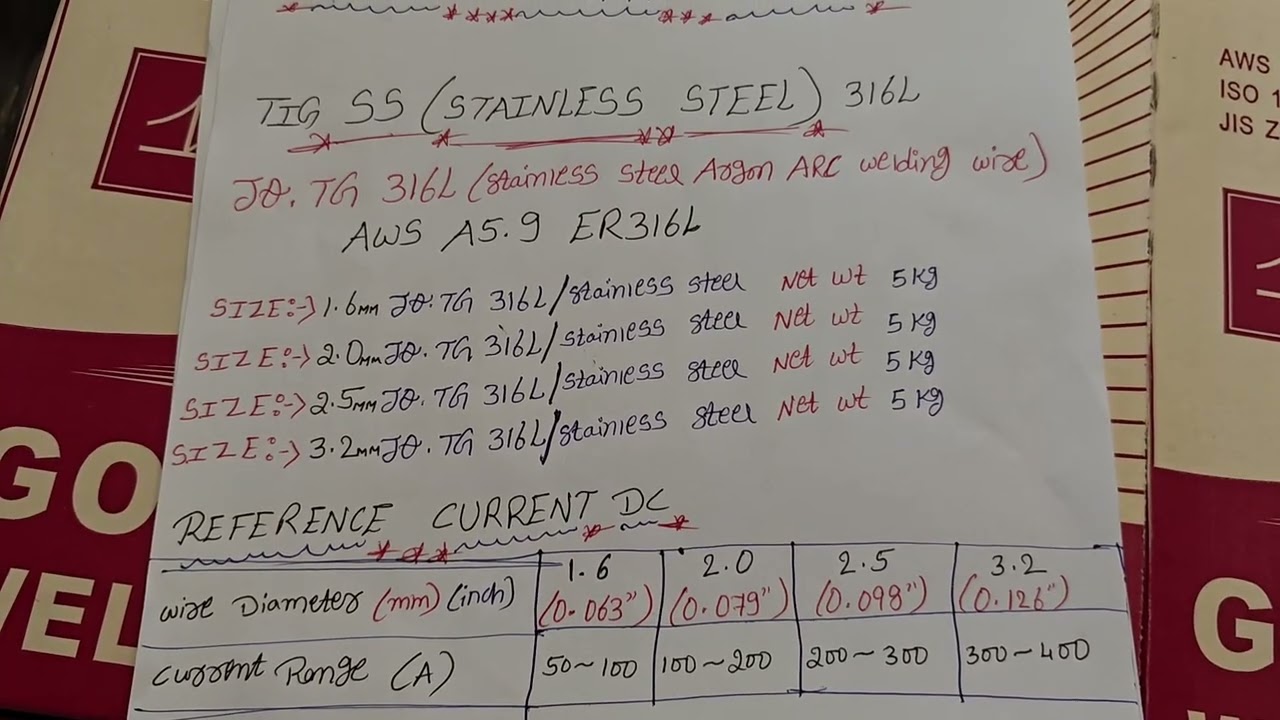 TIG SS (STAINLESS STEEL) 316L
JQ. TG 316L (stainless steel Argon ARC welding wire)
AWS A5.9 ER316L
SIZE:-> 1.6mm JQ. TG 316L/stainless steel Net wt 5 Kg
SIZE:-> 2.0mm JQ. TG 316L/stainless steel Net wt 5 Kg
SIZE:-> 2.5mm JQ. TG 316L/stainless steel Net wt 5 Kg
SIZE:-> 3.2mm JQ. TG 316L/stainless steel Net wt 5 Kg
REFERENCE CURRENT DC
wire Diameter (mm) (inch) 1.6 (0.063") 2.0 (0.079") 2.5 (0.098") 3.2 (0.126")
Current Range (A) 50~100 100~200 200~300 300~400
AWS
ISO 1
JIS Z
GO
WEL
G